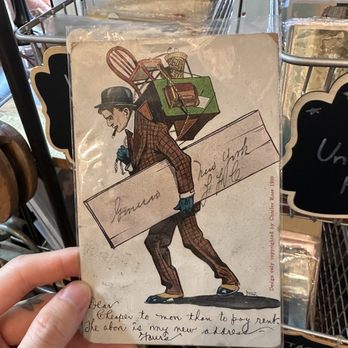 Geneseo New York
Design only copyrighted by Charles Rose 1908
Dear
Cheaper to mon than to pay rent.
The abov is my new address
Un